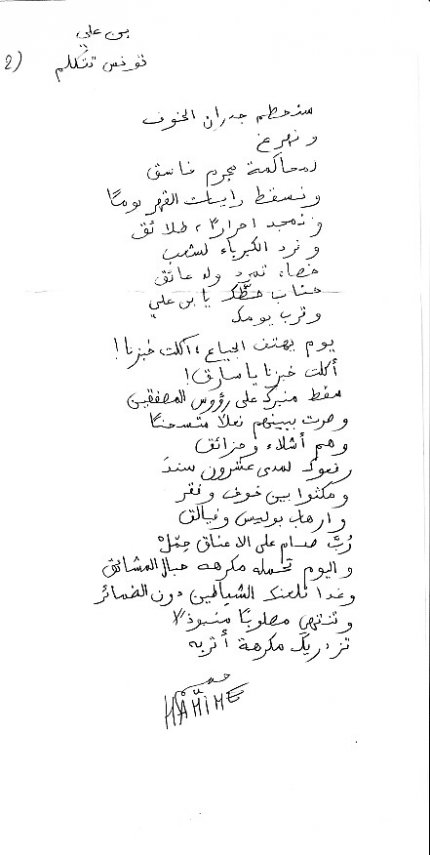 بن علي
2) تونس تتكلم
سنحطم جدران الخوف
ونهرع
لمحاكمة مجرم فاسق
ونسقط رايات القهر يومًا
ونمجد احرارًا، طلائق
ونرد الكبرياء لشعب
تمرد وله عائق
خاب حظّك يا بن علي
وقرب يومك
يوم يهتف الجياع: اكلت خبزنا!
أكلت خبزنا يا سارق!
سقط منبرك على رؤوس المصفقين
وصرت بينهم نعلا متسخًا
وهم أشلاء ومزائق
لمدى عشرون سنة
ومكثوا بين خوف وفقر
وارهاب بوليس وفيالق
رُبَّ صدام على الاعناق حِمْلٌ
واليوم تحمله مكرهه حبال المشانق
وغدا تلعنك الشياطين دون الضمائر
وتنتهي مصلوبًا منبوذًا
تزدريك مكرهة أتربه
HAMIME